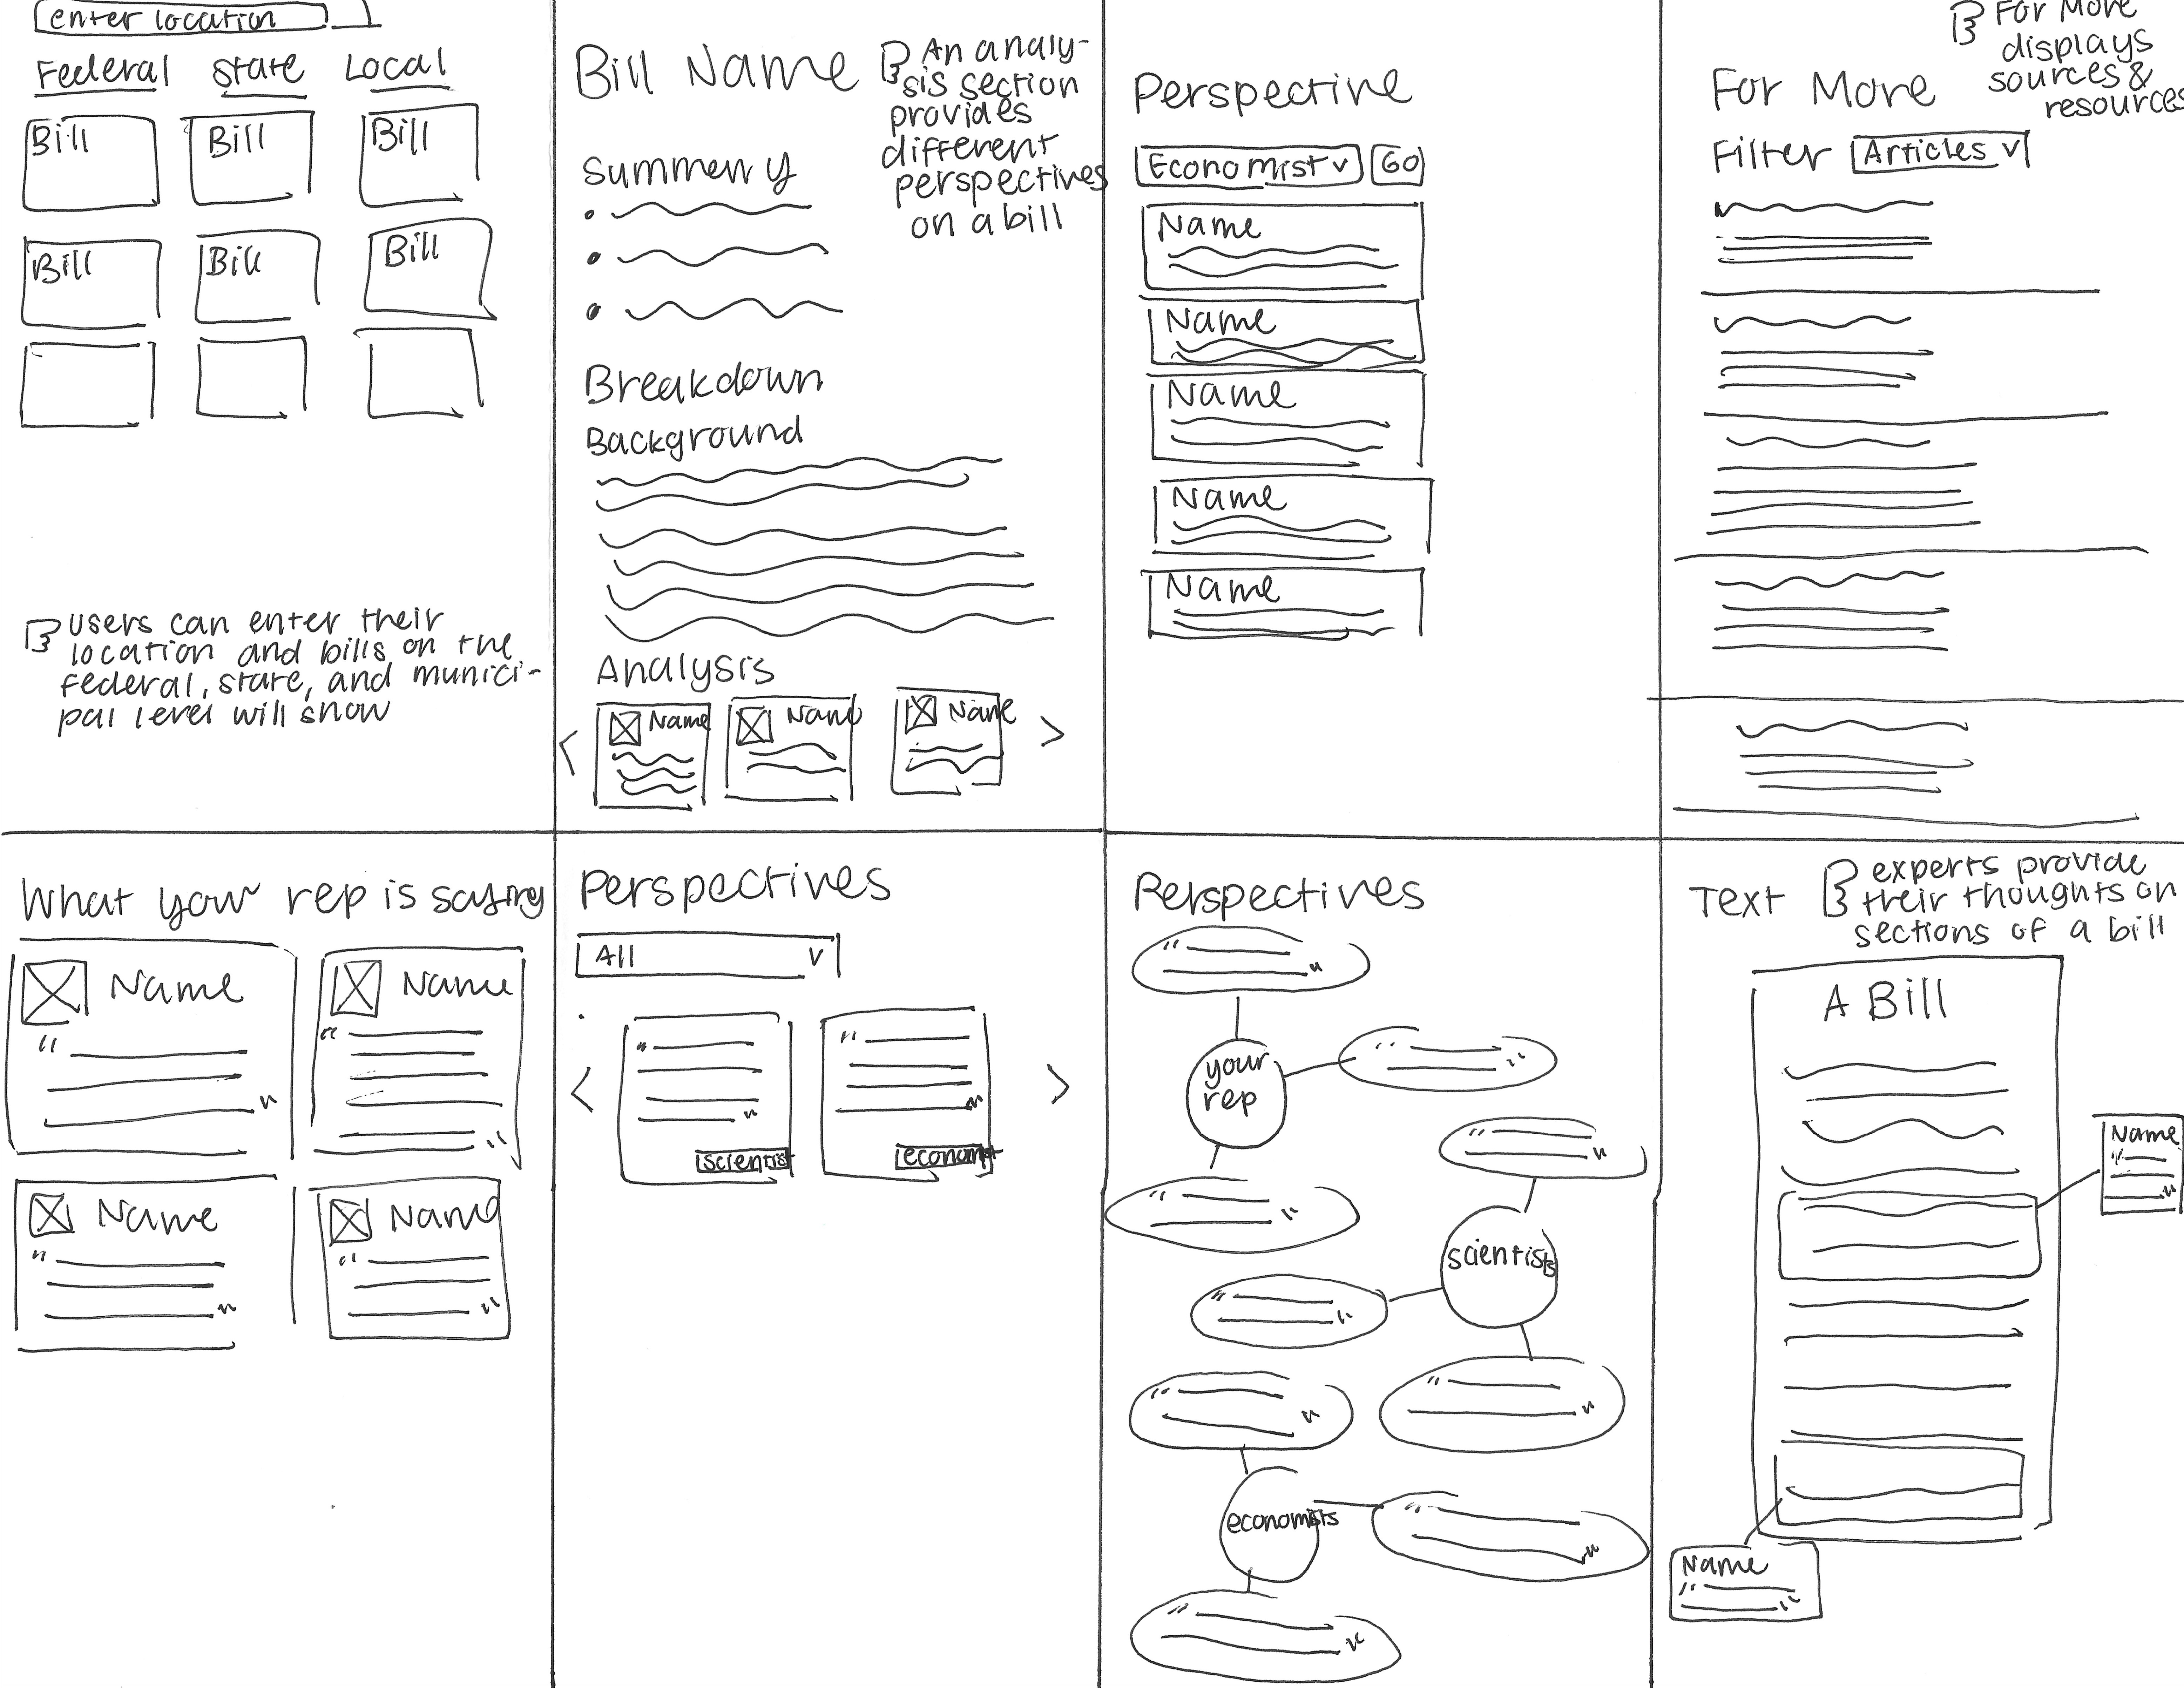 enter location
Federal State Local
Bill Bill Bill
Bill Bill Bill
users can enter their
location and bills on the
federal, state, and munici-
pal level will show
Bill Name
An analy-
sis section
provides
different
perspectives
on a bill
Summery
Breakdown
Background
Analysis
< Name Name Name >
Perspective
Economist v Go
Name
Name
Name
Name
Name
For More
For More
displays
sources &
resources
Filter Articles v
What your rep is saying
Name Name
" " " "
Name Name
" " " "
Perspectives
All v
< " " " " >
scientist economist
Perspectives
" "
your
rep
" "
" "
" "
scientists
" "
" "
" "
economists
" "
" "
Text
experts provide
their thoughts on
sections of a bill
A Bill
Name
" "
Name
" "